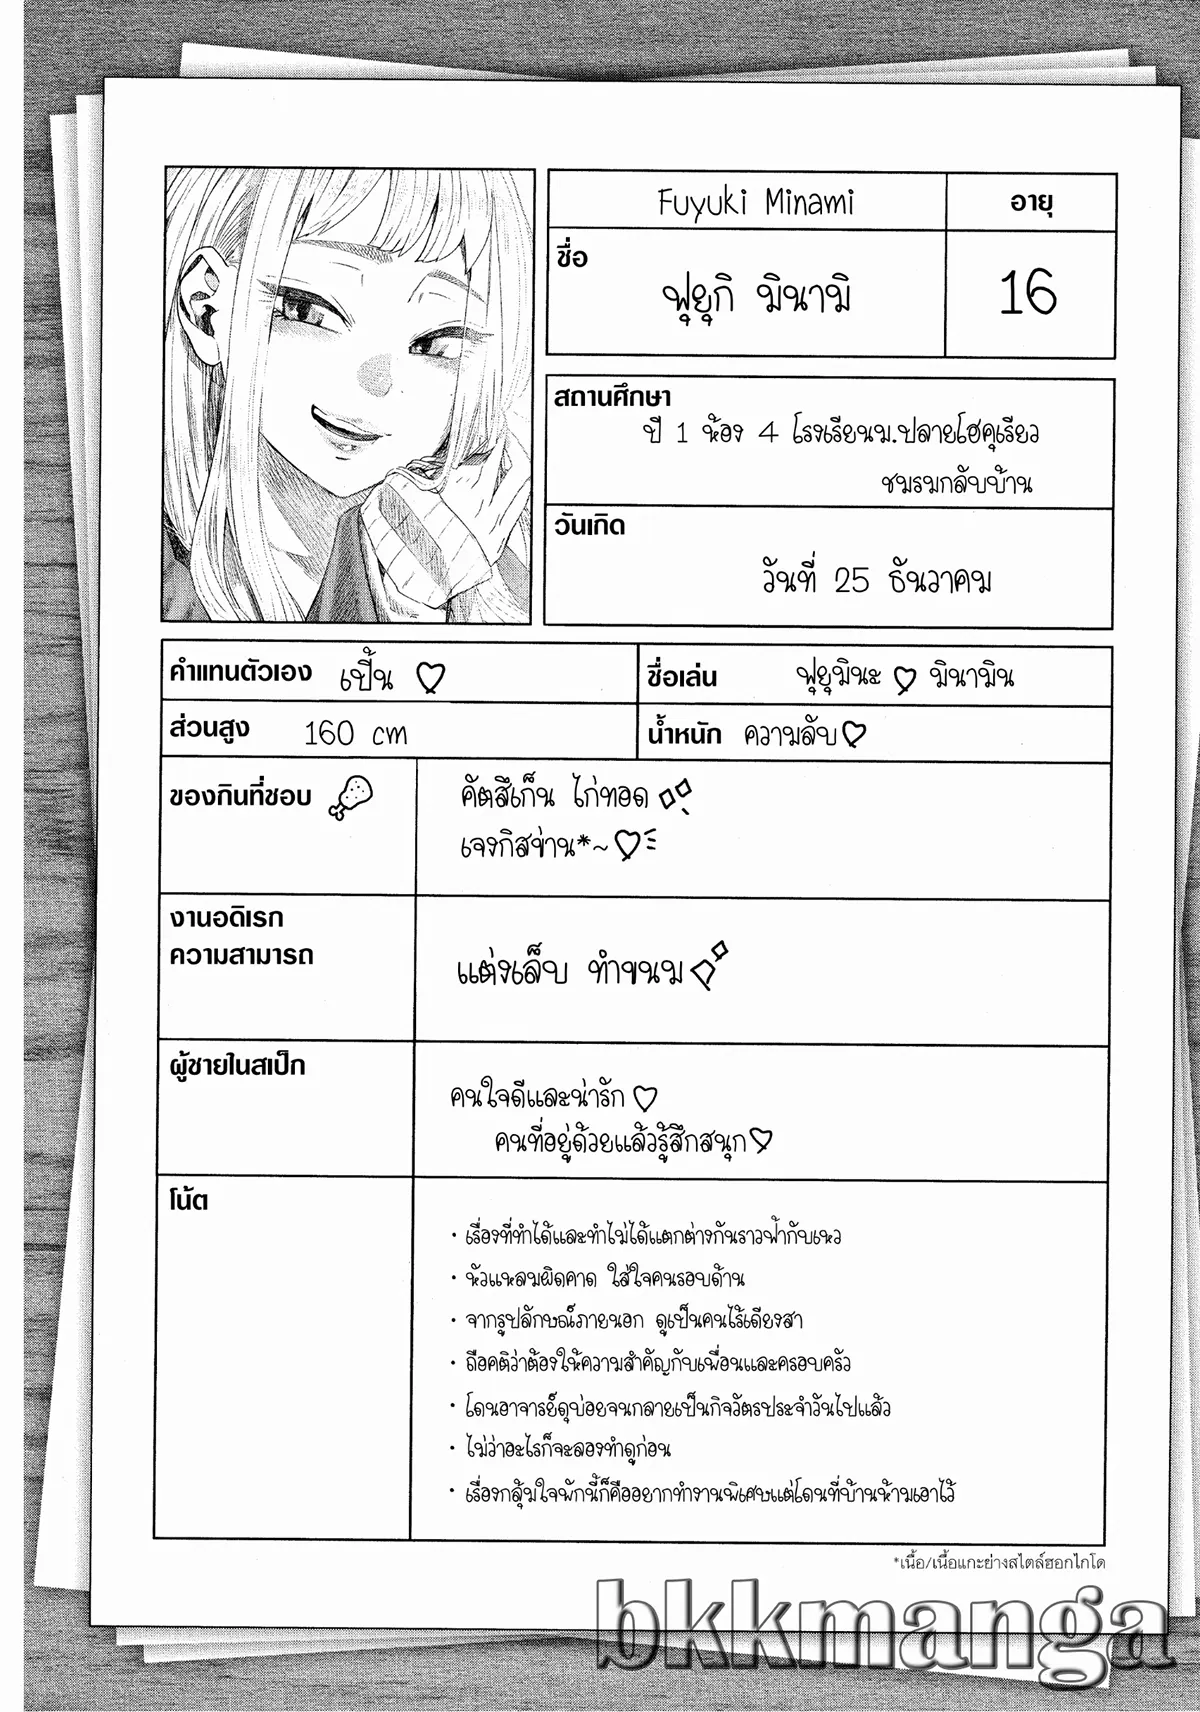 Fuyuki Minami
อายุ
ชื่อ
ฟุยุกิ มินามิ
16
สถานศึกษา
ปี 1 ห้อง 4 โรงเรียนม.ปลายโฮคุเรียว
ชมรมกลับบ้าน
วันเกิด
วันที่ 25 ธันวาคม
คำแทนตัวเอง เปิ้น ♡
ชื่อเล่น ฟุยุมินะ ♡ มินามิน
ส่วนสูง 160 cm
น้ำหนัก ความลับ♡
ของกินที่ชอบ
คัตสึเก็น ไก่ทอด
เจงกิสข่าน*~♡
งานอดิเรก
ความสามารถ
แต่งเล็บ ทำขนม
ผู้ชายในสเป็ก
คนใจดีและน่ารัก♡
คนที่อยู่ด้วยแล้วรู้สึกสนุก♡
โน้ต
· เรื่องที่ทำได้และทำไม่ได้แตกต่างกันราวฟ้ากับเหว
· หัวแหลมผิดคาด ใส่ใจคนรอบด้าน
· จากรูปลักษณ์ภายนอก ดูเป็นคนไร้เดียงสา
· ถือคติว่าต้องให้ความสำคัญกับเพื่อนและครอบครัว
· โดนอาจารย์ดุบ่อยจนกลายเป็นกิจวัตรประจำวันไปแล้ว
· ไม่ว่าอะไรก็จะลองทำดูก่อน
· เรื่องกลุ้มใจพักนี้ก็คืออยากทำงานพิเศษแต่โดนที่บ้านห้ามเอาไว้
*เนื้อ/เนื้อแกะย่างสไตล์ฮอกไกโด
bkkmanga